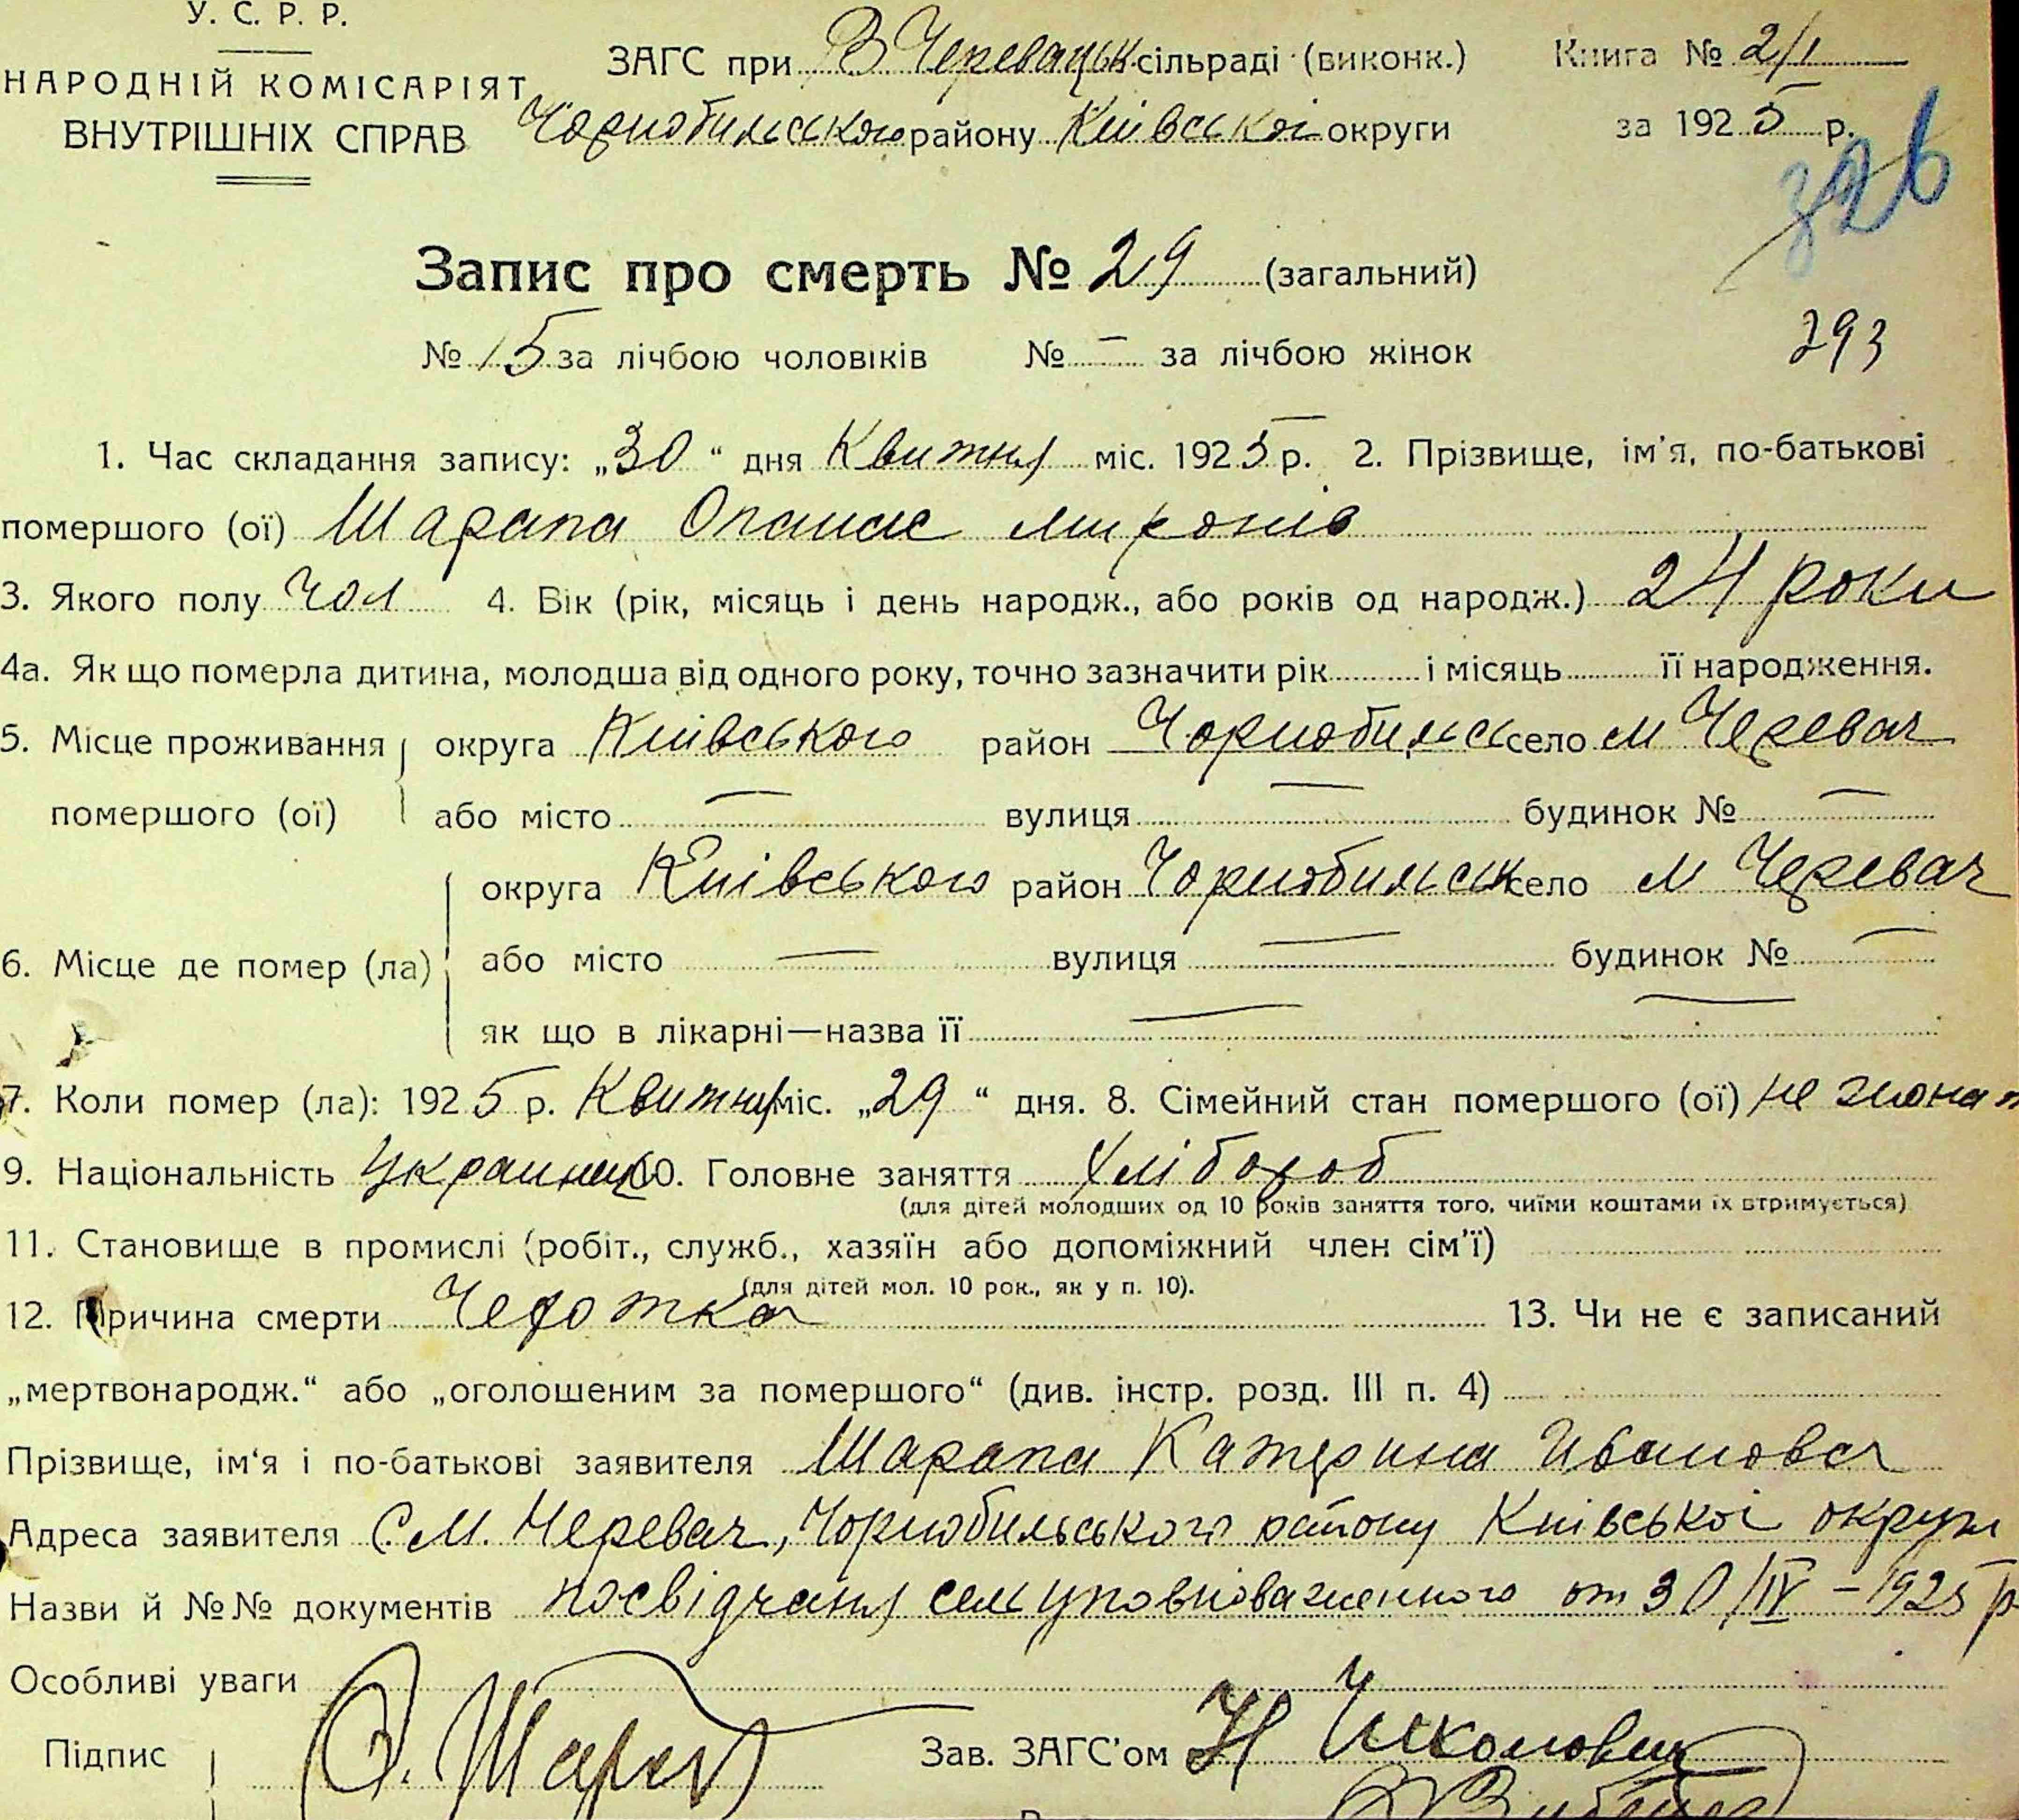 У. С. Р. Р.
НАРОДНІЙ КОМІСАРІЯТ
ВНУТРІШНІХ СПРАВ
ЗАГС при В Черевацьк сільраді (виконк.)
Чорнобильського району Київської округи
Книга № 2/1
за 1925 р.
326
Запис про смерть № 29 (загальний)
№ 15 за лічбою чоловіків № — за лічбою жінок
293
1. Час складання запису: „30“ дня Квитня міс. 1925 р. 2. Прізвище, ім'я, по-батькові
помершого (ої) Шарапа Опанас миронів
3. Якого полу чол 4. Вік (рік, місяць і день народж., або років од народж.) 24 роки
4а. Як що померла дитина, молодша від одного року, точно зазначити рік і місяць її народження.
5. Місце проживання помершого (ої) округа Київського район Чорнобильс село М Черевач
або місто — вулиця — будинок № —
6. Місце де помер (ла) округа Київського район Чорнобильськ село М Черевач
або місто — вулиця — будинок № —
як що в лікарні—назва її —
7. Коли помер (ла): 1925 р. Квитня міс. „29“ дня. 8. Сімейний стан помершого (ої) не жонат
9. Національність Украинец 10. Головне заняття Хлібороб
(для дітей молодших од 10 років заняття того, чиїми коштами їх втримується)
11. Становище в промислі (робіт., служб., хазяїн або допоміжний член сім'ї)
(для дітей мол. 10 рок., як у п. 10).
12. Причина смерти Чехотка 13. Чи не є записаний
„мертвонародж.“ або „оголошеним за помершого“ (див. інстр. розд. III п. 4)
Прізвище, ім'я і по-батькові заявителя Шарапа Катерина Ивановa
Адреса заявителя С. М. Черевач, Чорнобильського району Київської округи
Назви й №№ документів посвідчання сель уповноваженного от 30/IV – 1925 р
Особливі уваги
Підпис
Зав. ЗАГС'ом Н